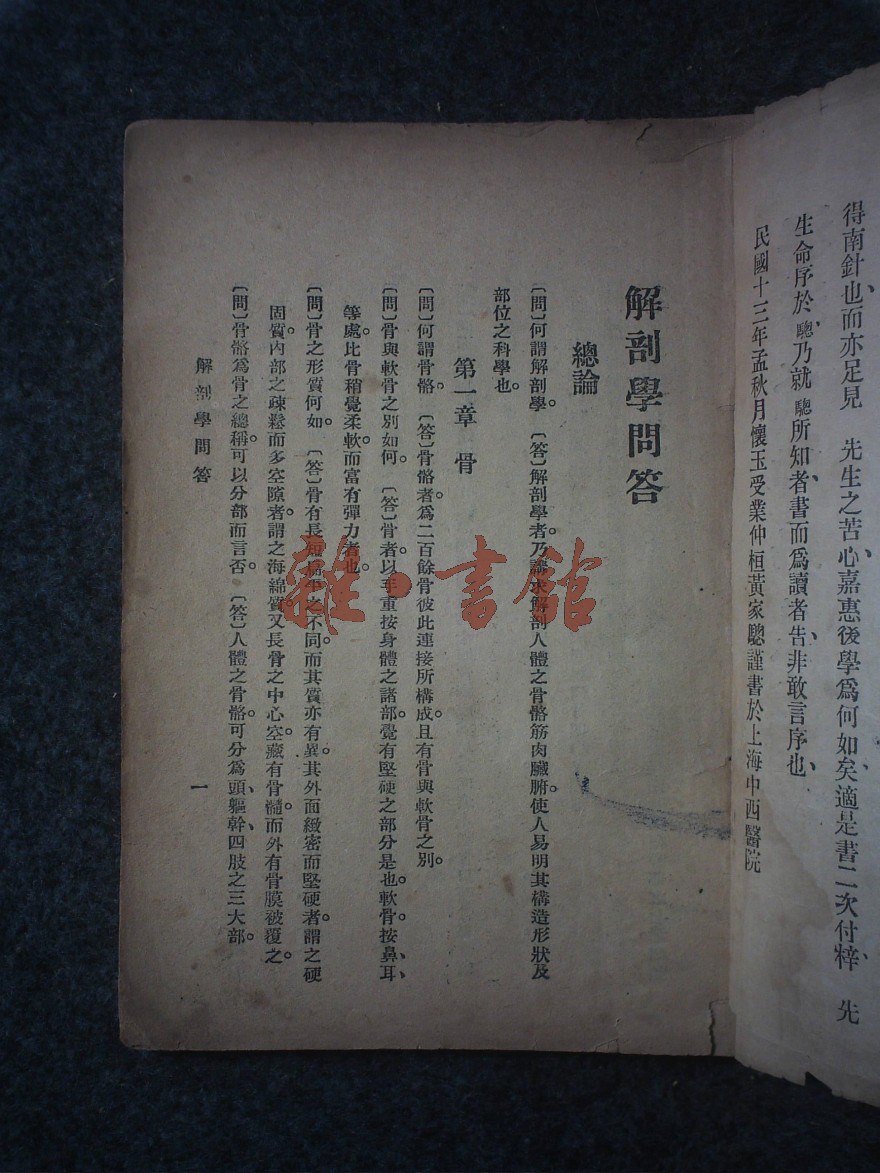 得南針也而亦足見　先生之苦心嘉惠後學爲何如矣適是書二次付梓　先
生命序於聰乃就聰所知者書而爲讀者告非敢言序也
民國十三年孟秋月懷玉受業仲桓黃家聰謹書於上海中西醫院
解剖學問答
總論
〔問〕何謂解剖學。〔答〕解剖學者。乃講求解剖人體之骨骼筋肉臟腑。使人易明其構造形狀及
部位之科學也。
第一章　骨
〔問〕何謂骨骼。〔答〕骨骼者。爲二百餘骨彼此連接所構成。且有骨與軟骨之別。
〔問〕骨與軟骨之別如何。〔答〕骨者。以手重按身體之諸部。覺有堅硬之部分是也。軟骨。按鼻、耳、
等處。比骨稍覺柔軟。而富有彈力者也。
〔問〕骨之形質何如。〔答〕骨有長短扁平之不同。而其質亦有異。其外面緻密而堅硬者。謂之硬
固質。內部之疎鬆而多空隙者。謂之海綿質。又長骨之中心空。藏有骨髓。而外有骨膜被覆之。
〔問〕骨骼爲骨之總稱。可以分部而言否。〔答〕人體之骨骼。可分爲頭、軀幹、四肢之三大部。
解剖學問答
一
雜·書館